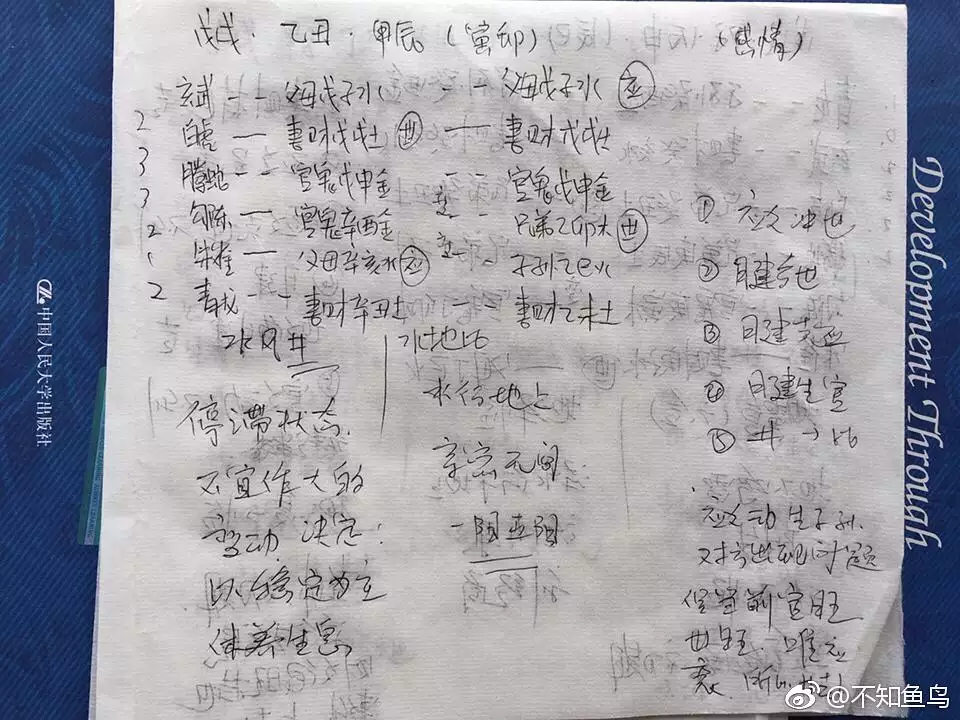 戊戌·乙丑·甲辰(寅卯)(感情)
玄武 -- 父母戊子水 -- 父母戊子水 应
2 白虎 — 妻财戊戌土 世 — 妻财戊戌土
3 腾蛇 -- 官鬼戊申金 -- 官鬼戊申金
3 勾陈 — 官鬼辛酉金 -- 兄弟乙卯木 世
2 朱雀 — 父母辛亥水 应 -- 子孙乙巳火
2 青龙 -- 妻财辛丑土 妻财乙未土
水风井
水地比
停滞状态
不宜作大的
变动 决定:
以稳定为主
休养生息
水行地上
亲密无间
① 应爻冲世
② 日建合世
③ 日建克应
④ 日建生官
⑤ 井→比
应爻动生子孙.
世旺. 唯应
中国人民大学出版社
Development Through
@不知鱼鸟